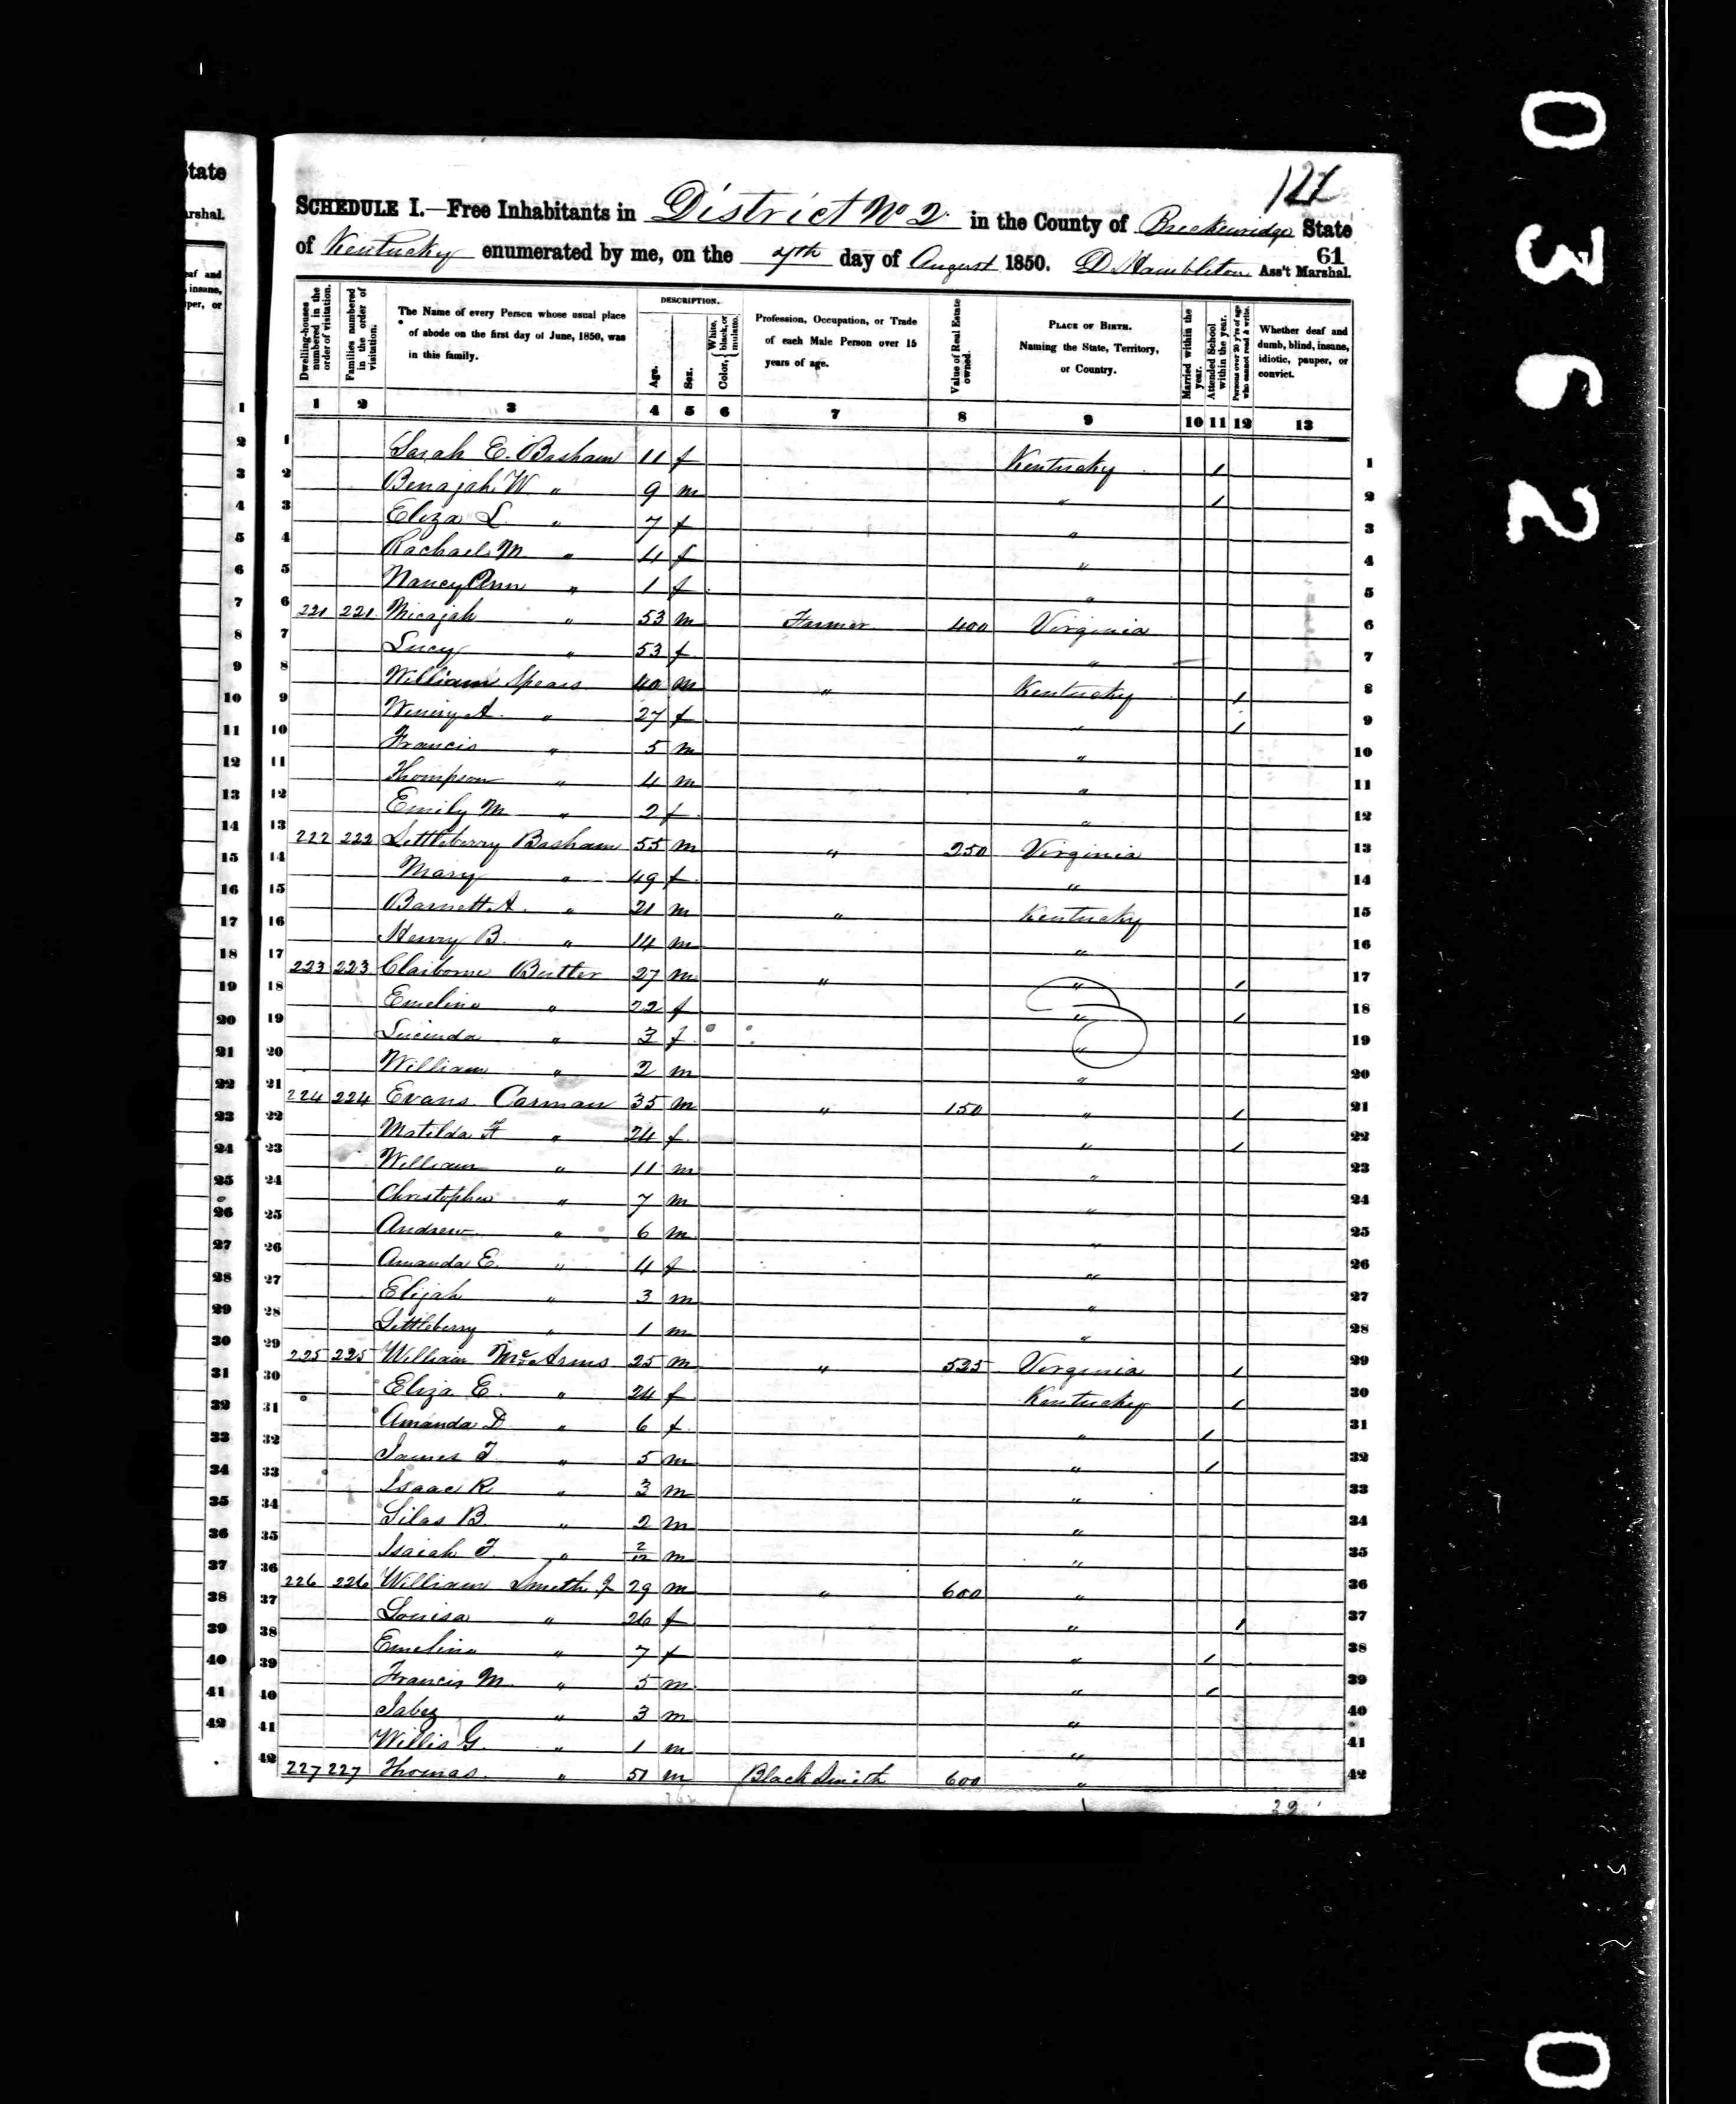 tate
rshal.
eaf and
insane,
per, or
121
SCHEDULE I.—Free Inhabitants in District No 2. in the County of Breckenridge State
of Kentucky enumerated by me, on the 7th day of August 1850. D Hambleton Ass't Marshal.
61
Dwelling-houses numbered in the order of visitation.
Families numbered in the order of visitation.
The Name of every Person whose usual place of abode on the first day of June, 1850, was in this family.
DESCRIPTION.
Age.
Sex.
Color, { White, black, or mulatto.
Profession, Occupation, or Trade of each Male Person over 15 years of age.
Value of Real Estate owned.
PLACE OF BIRTH. Naming the State, Territory, or Country.
Married within the year.
Attended School within the year.
Persons over 20 y'rs of age who cannot read & write.
Whether deaf and dumb, blind, insane, idiotic, pauper, or convict.
1 2 3 4 5 6 7 8 9 10 11 12 13
1 Sarah E. Basham 11 f Kentucky 1 1
2 Benajah W " 9 m " 1 2
3 Eliza L. " 7 f " 3
4 Rachael M " 4 f " 4
5 Nancy Ann " 1 f " 5
6 221 221 Micajah " 53 m Farmer 400 Virginia 6
7 Lucy " 53 f " 7
8 William Spears 40 m " Kentucky 1 8
9 Winny A. " 27 f " 1 9
10 Francis " 5 m " 10
11 Thompson " 4 m " 11
12 Emily M " 2 f " 12
13 222 222 Littleberry Basham 55 m " 250 Virginia 13
14 Mary " 49 f " 14
15 Barnett A. " 21 m " Kentucky 15
16 Henry B. " 14 m " 16
17 223 223 Claiborne Butler 27 m " " 1 17
18 Emeline " 22 f " 1 18
19 Lucinda " 3 f " 19
20 William " 2 m " 20
21 224 224 Evans Carman 35 m " 150 " 1 21
22 Matilda F " 24 f " 1 22
23 William " 11 m " 23
24 Christopher " 7 m " 24
25 Andrew " 6 m " 25
26 Amanda E. " 4 f " 26
27 Elijah " 3 m " 27
28 Littleberry " 1 m " 28
29 225 225 William McArms 25 m " 525 Virginia 1 29
30 Eliza E. " 24 f Kentucky 1 30
31 Amanda D. " 6 f " 1 31
32 James T. " 5 m " 1 32
33 Isaac R. " 3 m " 33
34 Silas B. " 2 m " 34
35 Isaiah T. " 2/12 m " 35
36 226 226 William Smith J 29 m " 600 " 36
37 Louisa " 26 f " 1 37
38 Emeline " 7 f " 1 38
39 Francis M. " 5 m " 1 39
40 Jabez " 3 m " 40
41 Willis G. " 1 m " 41
42 227 227 Thomas " 51 m Black Smith 600 " 42
0362
0